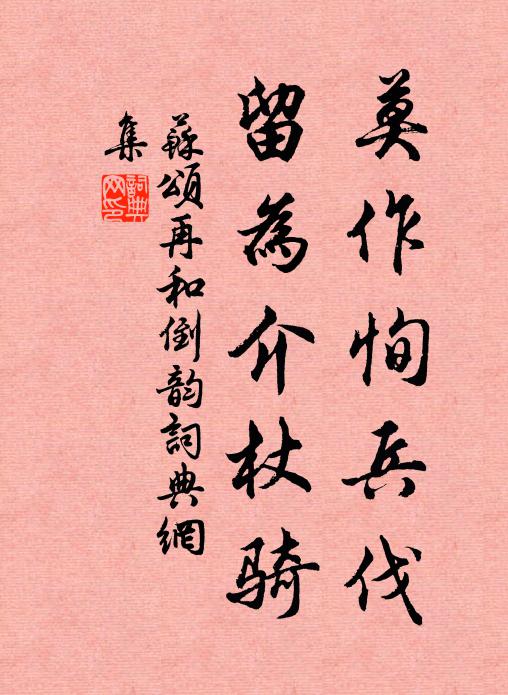 莫作恂兵伐
留為介杖骑
蘇頌再和倒韵詞典網
集
詞典
网印